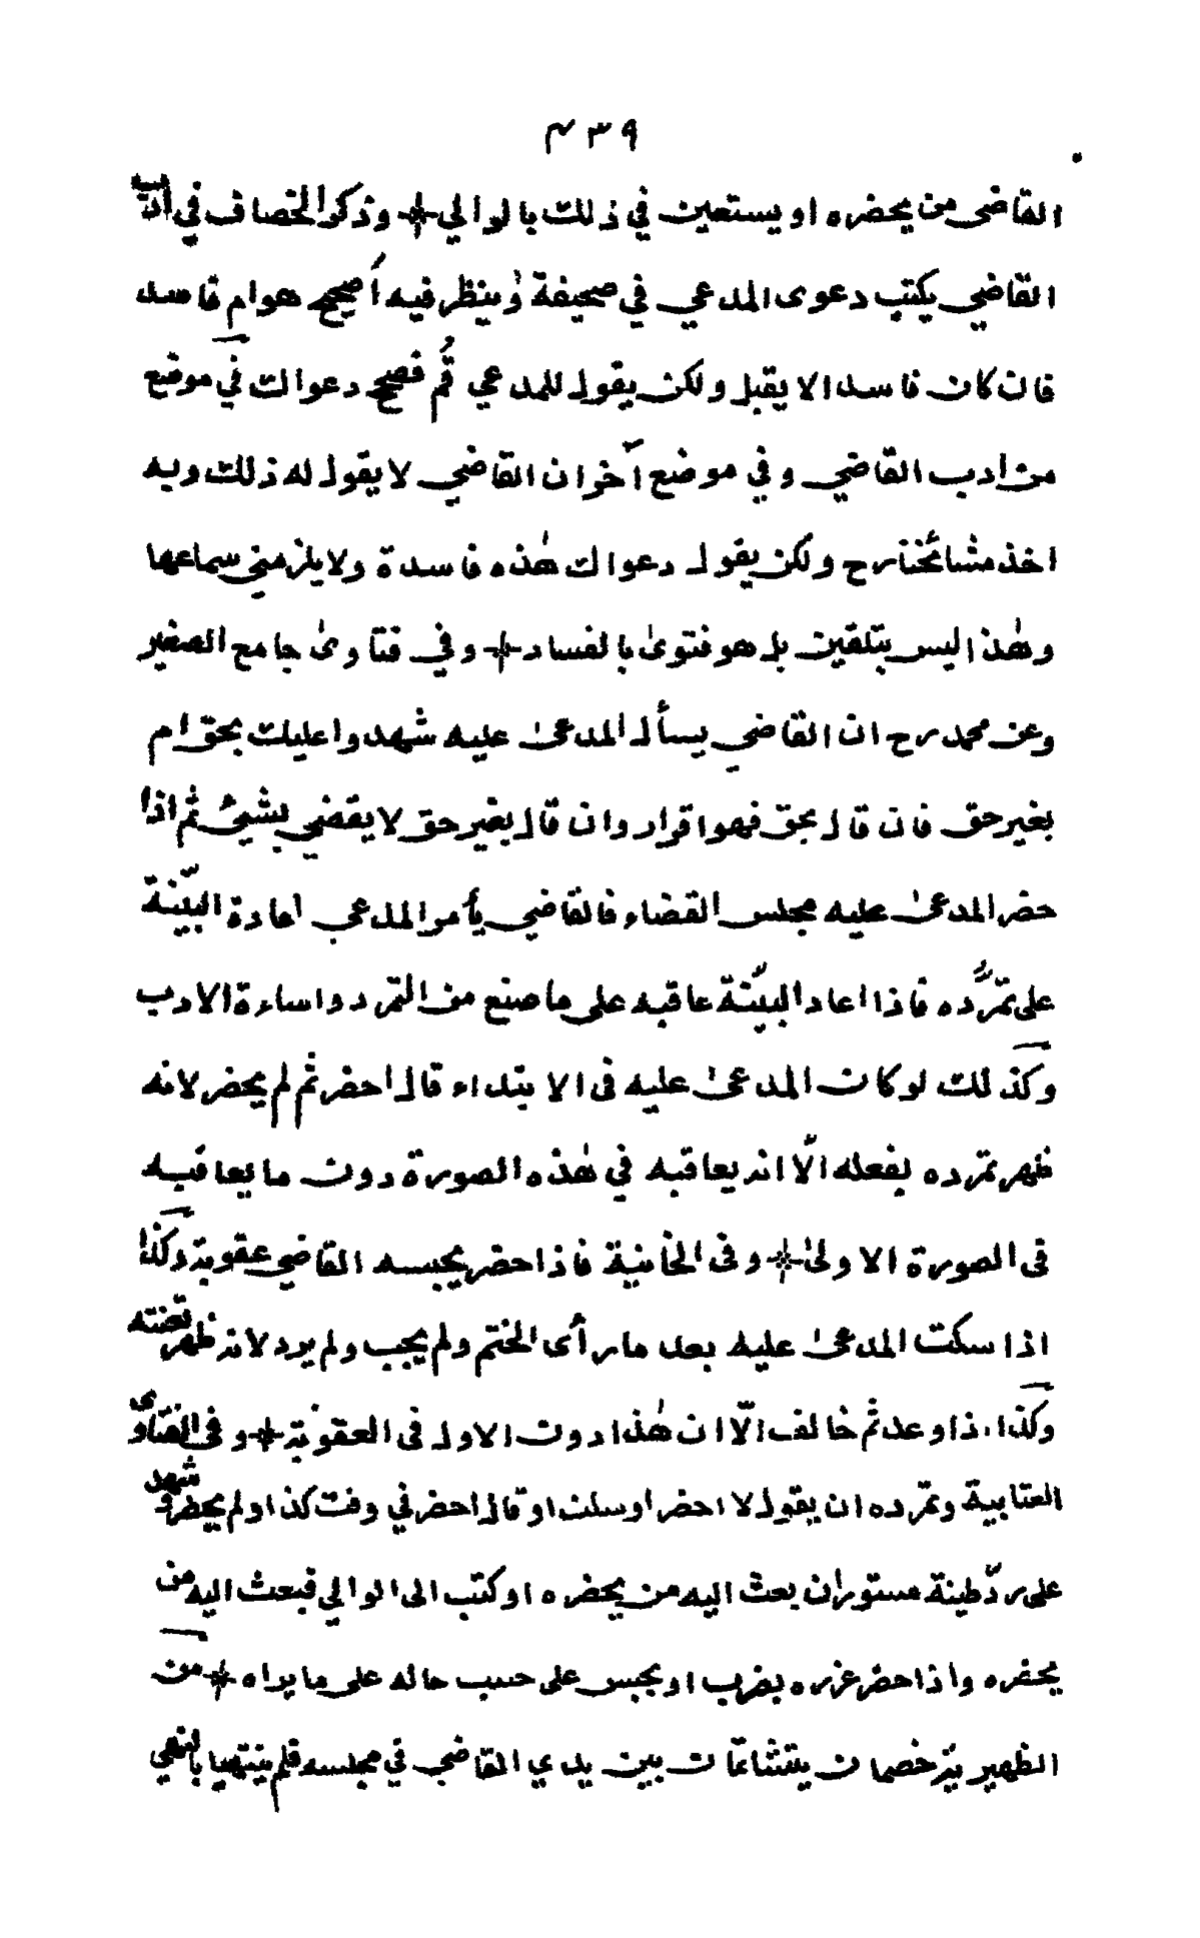 ٤٣٩
القاضى من يحضره او يستعين في ذلك بالوالي + وذكر الخصاف في ادب
القاضي يكتب دعوى المدعي في صحيفة وينظر فيه أصحيح هو ام فاسد
فان كان فاسدا لا يقبل ولكن يقول للمدعي قُم فصحح دعواك في موضع
من ادب القاضي وفي موضع آخر ان القاضي لا يقول له ذلك وبه
اخذ مشائخنا رح ولكن يقول دعواك هٰذه فاسدة ولا يلزمني سماعها
وهٰذا ليس بتلقين بل هو فتوىٰ بالفساد + وفي فتاوىٰ جامع الصغير
وعن محمد رح ان القاضي يسأل المدعىٰ عليه شهدوا عليك بحق ام
بغير حق فان قال بحق فهو اقرار وان قال بغير حق لا يقضي بشيئ ثم اذا
حضر المدعىٰ عليه مجلس القضاء فالقاضي يأمر المدعي اعادة البيّنة
على تمرُّده فاذا اعاد البيّنة عاقبه على ما صنع من التمرد واساءة الادب
وكذلك لو كان المدعىٰ عليه فى الابتداء قال احضر ثم لم يحضر لانه
ظهر تمرده بفعله الّا انه يعاقبه في هٰذه الصورة دون ما يعاقبه
فى الصورة الاولىٰ + وفى الخانية فاذا حضر يحبسه القاضي عقوبة وكذا
اذا سكت المدعىٰ عليه بعد ما رأى الختم ولم يجب ولم يرد لانه ظهر تعنته
وكذا اذا وعد ثم خالف الّا ان هٰذا دون الاول فى العقوبة + و فى الفتاوى
العتابية وتمرده ان يقول لا احضر او سكت او قال احضر في وقت كذا ولم يحضر وشهد
على ردّ طينة مستوران بعث اليه من يحضره او كتب الى الوالي فبعث اليه من
يحضره واذا حضر عزره بضرب او بحبس على حسب حاله على ما يراه + من
الظهيرية خصمان يتشاتمان بين يدي القاضي في مجلسه فلم ينتهيا بالنهي